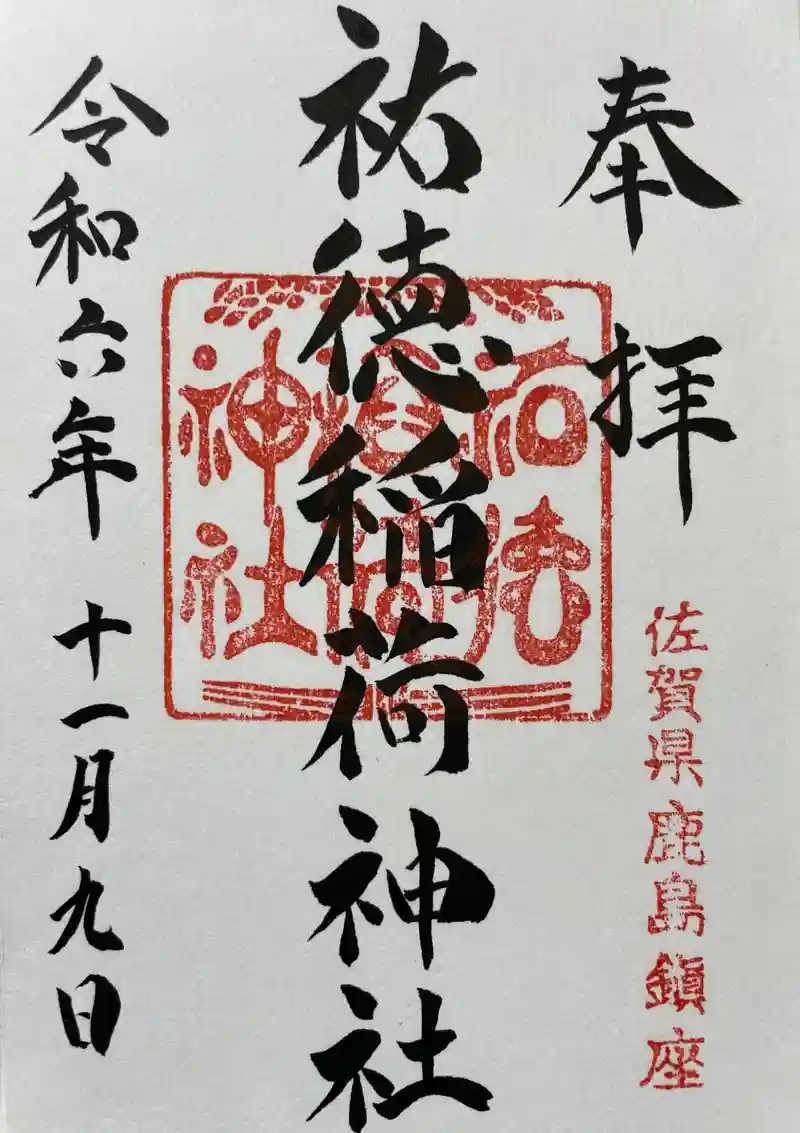 奉拝
佐賀県鹿島鎮座
祐徳稲荷神社
祐徳稲荷神社
令和六年十一月九日